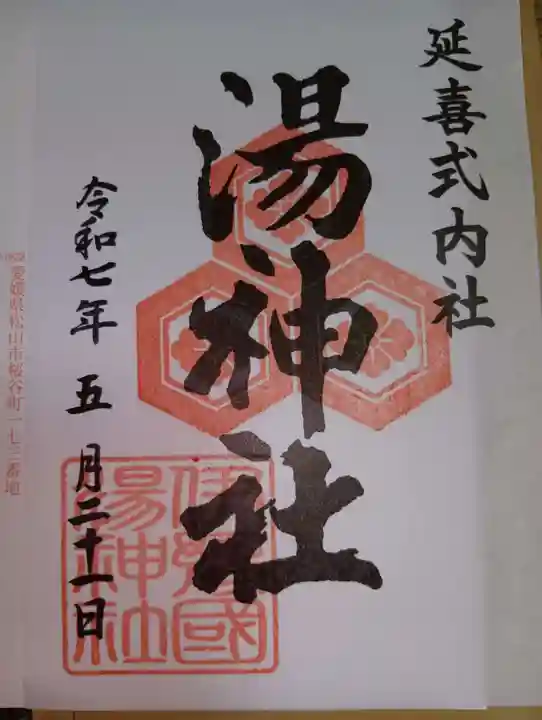 延喜式内社
湯神社
令和七年 五 月二十一日
伊豫國
湯神社
愛媛県松山市桜谷町一七三番地